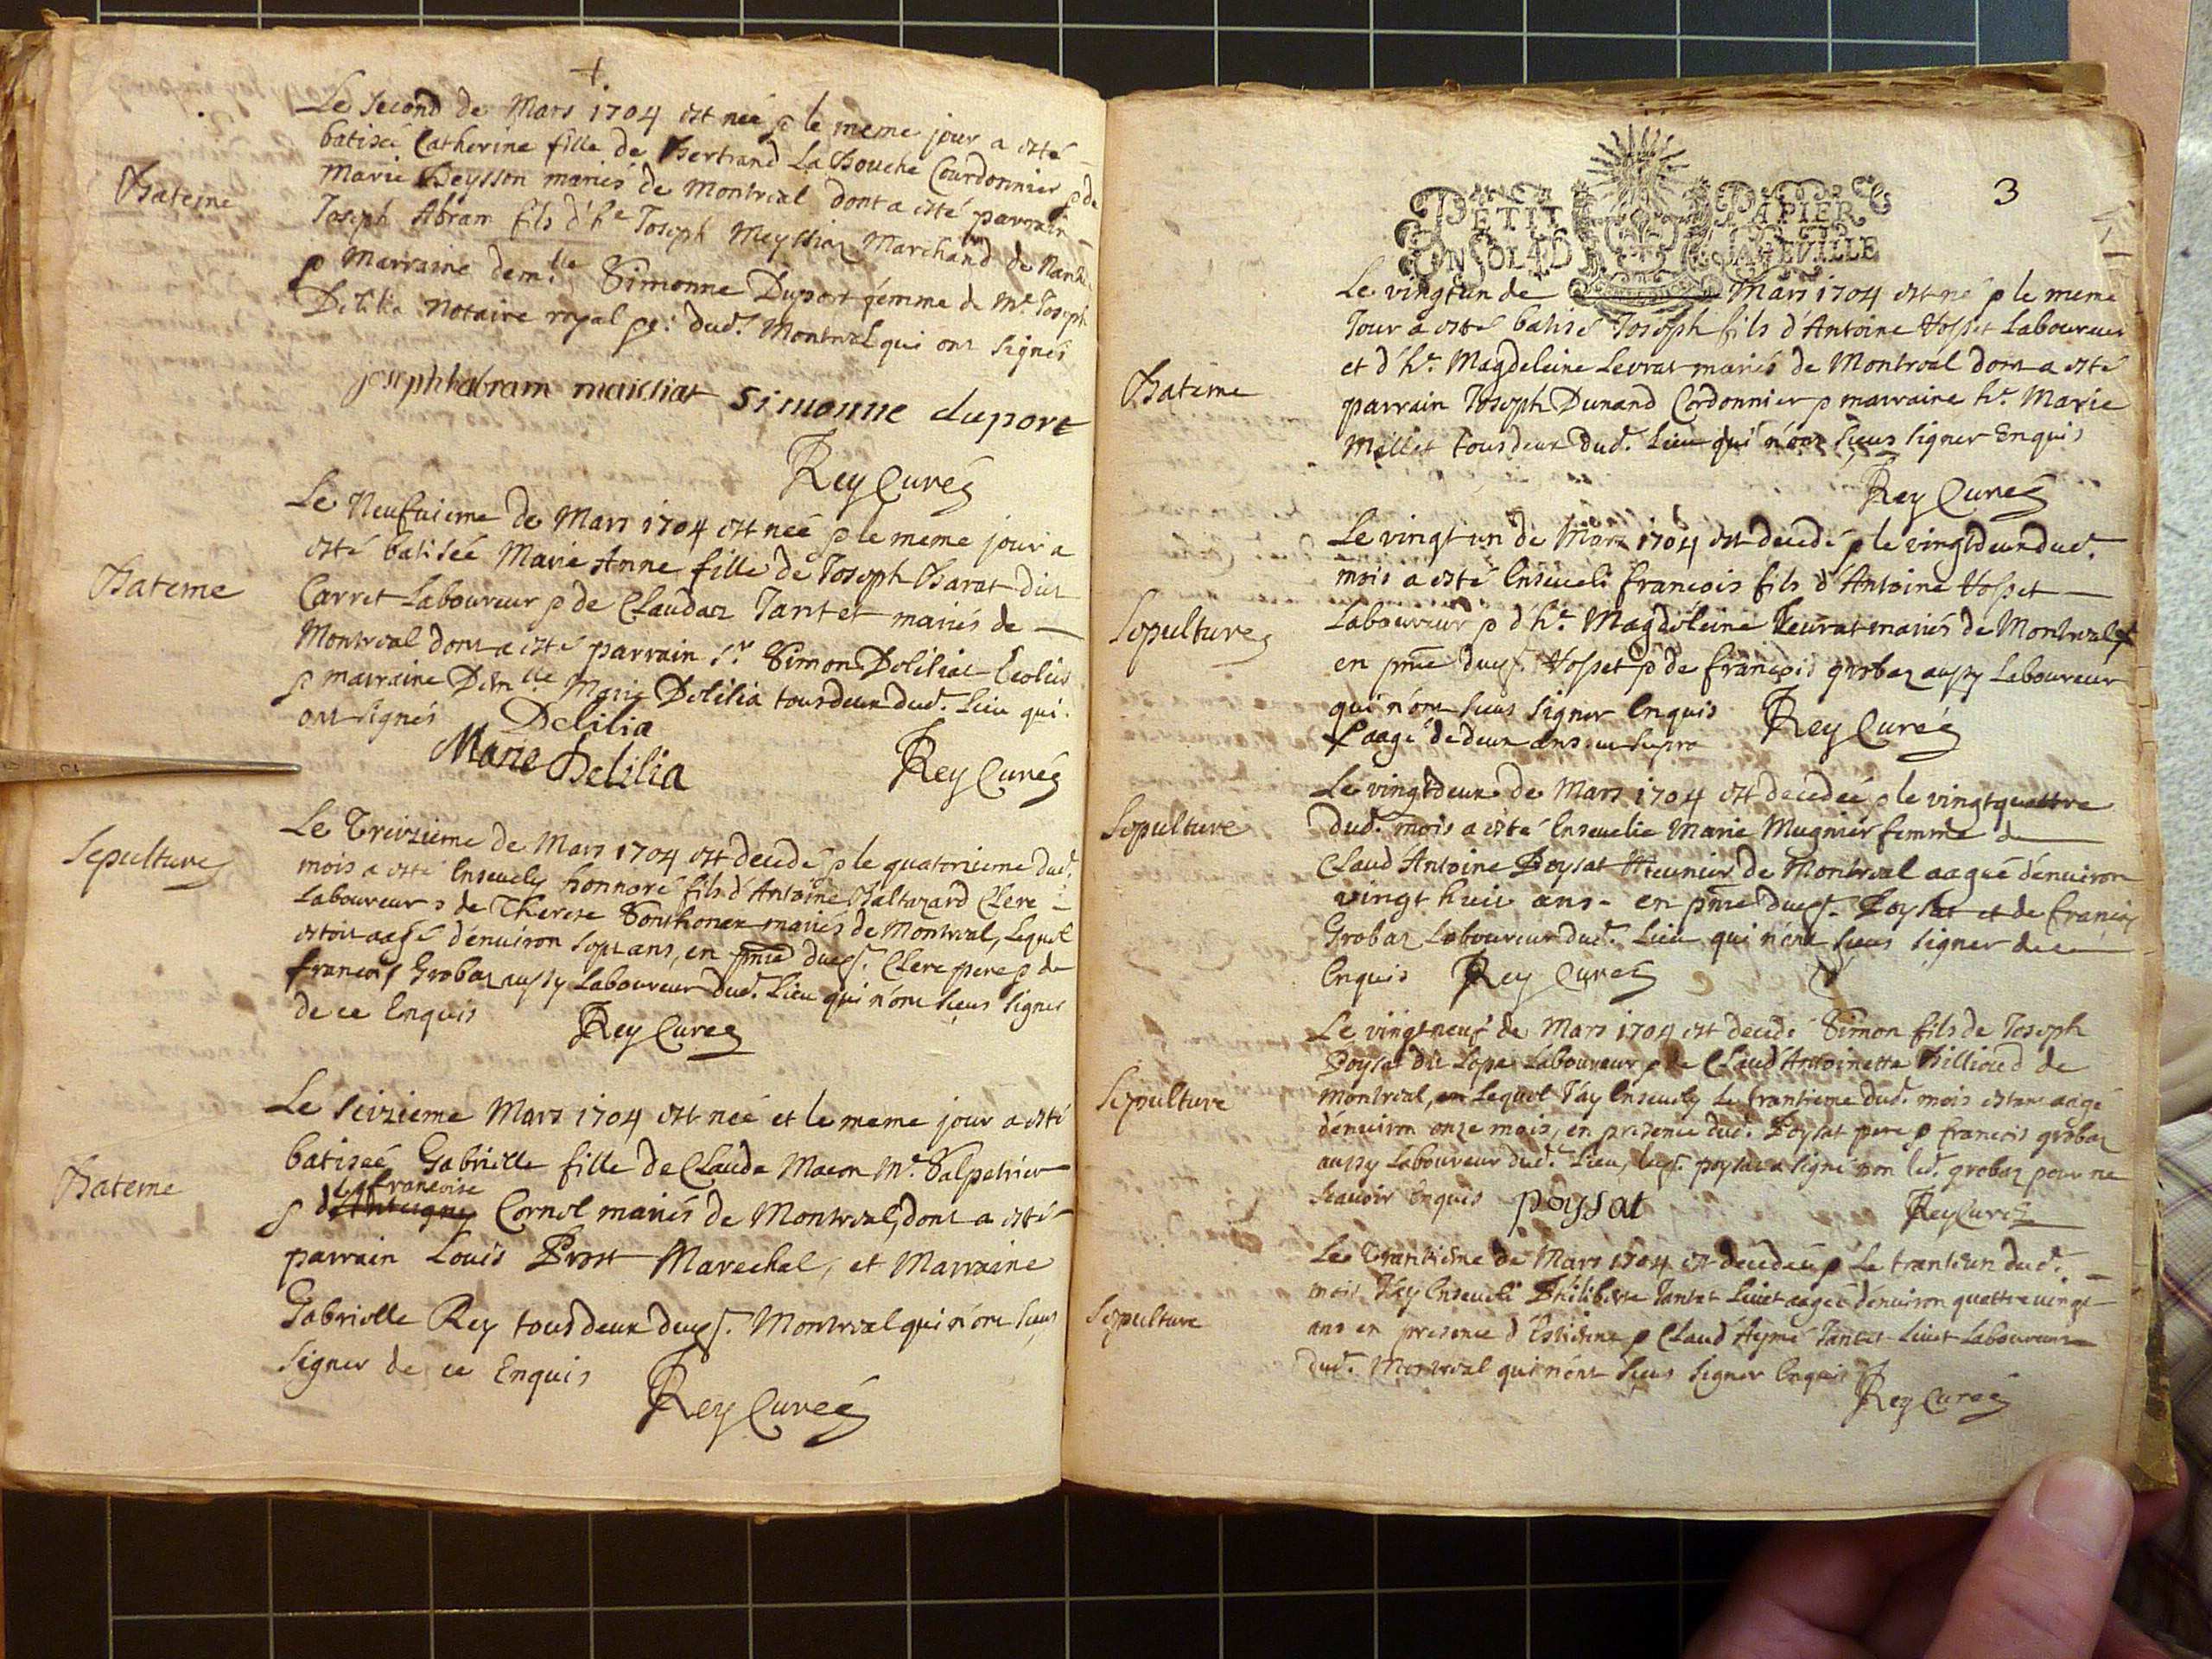 +
Le second de Mars 1704 est née & le meme jour a esté
batisée Catherine fille de Bertrand La Bouche Courdonnier & de
Marie Beysson mariés de Montreal dont a esté parrain
Bateme
Joseph Abram fils d'h.e Joseph Meyssiaz Marchand de
& Marraine dem.lle Simonne Duport femme de M.e Joseph
Delilia Notaire royal dud. Montreal qui ont signés
josephhabram maissiat simonne duport
Rey Curé
Le Neufuieme de Mars 1704 est née & le meme jour a
esté batisée Marie Anne fille de Joseph Barat dit
Bateme
Carret Laboureur & de Claudaz Tantet mariés de
Montreal dont a esté parrain s.r Simon Deliliaz Ecolier
& marraine Dem.lle Marie Delilia tousdeux dud. Lieu qui
ont signés Delilia
Marie Delilia Rey Curé
Le Treizieme de Mars 1704 est decedé & le quatorzieme dud.
Sepulture
mois a esté Enseuely honnoré fils d'Antoine Baltazard Clere
Laboureur & de Therese mariés de Montreal, Lequel
estoit aagé d'enuiron sept ans, en pnce dues. Clere pere & de
francois Grobaz aussy Laboureur dud. Lieu qui n'ont sceus signer
de ce Enquis Rey Curé
Le seizieme Mars 1704 est née et le meme jour a esté
batiseé Gabrielle fille de Claude Macon M.e Salpetrier
Bateme
francoise
& Cornel mariés de Montreal, dont a esté
parrain Louis Prost Marechal, et Marraine
Gabrielle Rey tousdeux dues. Montreal qui n'ont sceus
signer de ce Enquis
Rey Curé
3
PETIT PAPIER
UN SOL 4 D LA FEVILLE
Le vingtun de Mars 1704 est né & le meme
Jour a esté batisé Joseph fils d'Antoine Vosset Laboureur
et d'h.e Magdeleine Levrat mariés de Montreal dont a esté
Bateme
parrain Joseph Dunand Cordonnier & marraine h.e Marie
Millet tousdeux dud. Lieu qui n'ont sceus signer Enquis
Rey Curé
Le vingt un de Mars 1704 est decedé & le vingtdeux dud.
mois a esté Enseueli francois fils d'Antoine Vosset
Sepulture
Laboureur & d'h.e Magdeleine Leurat mariés de Montreal
en pnce dues. Vosset & de francois grobaz aussy Laboureur
qui n'ont sceus signer Enquis Rey Curé
aagé de deux ans ut supra
Le vingtdeux de Mars 1704 est decedée & le vingtquattre
Sepulture
dud. mois a esté Enseuelie Marie Mugnier femme de
Claud Antoine Poysat Meunier de Montreal aagée d'enuiron
vingt huit ans en pnce dues. Poysat et de francois
Grobaz Laboureur dud. Lieu qui n'ont sceus signer de ce
Enquis Rey Curé
Le vingtneuf de Mars 1704 est decedé Simon fils de Joseph
Poysat dit Lopa Laboureur & de Claud'Antoinette Billioud de
Sepulture
Montreal, Lequel J'ay Enseuely le trantieme dud. mois estant aagé
d'enuiron onze mois, en presence dud. Poysat pere & francois grobaz
aussy Laboureur dud. Lieu, poysat a signé non led. grobaz pour ne
scauoir Enquis poysat Rey Curé
Le Trantieme de Mars 1704 est decedée & Le trantun dud.
mois J'ay Enseueli Philiberte Tantet Liuet aageé d'enuiron quattrevingt
Sepulture
ans en presence d'Estienne & Claud'Aymé Tantet Liuet Laboureurs
dud. Montreal qui n'ont sceus signer Enquis
Rey Curé